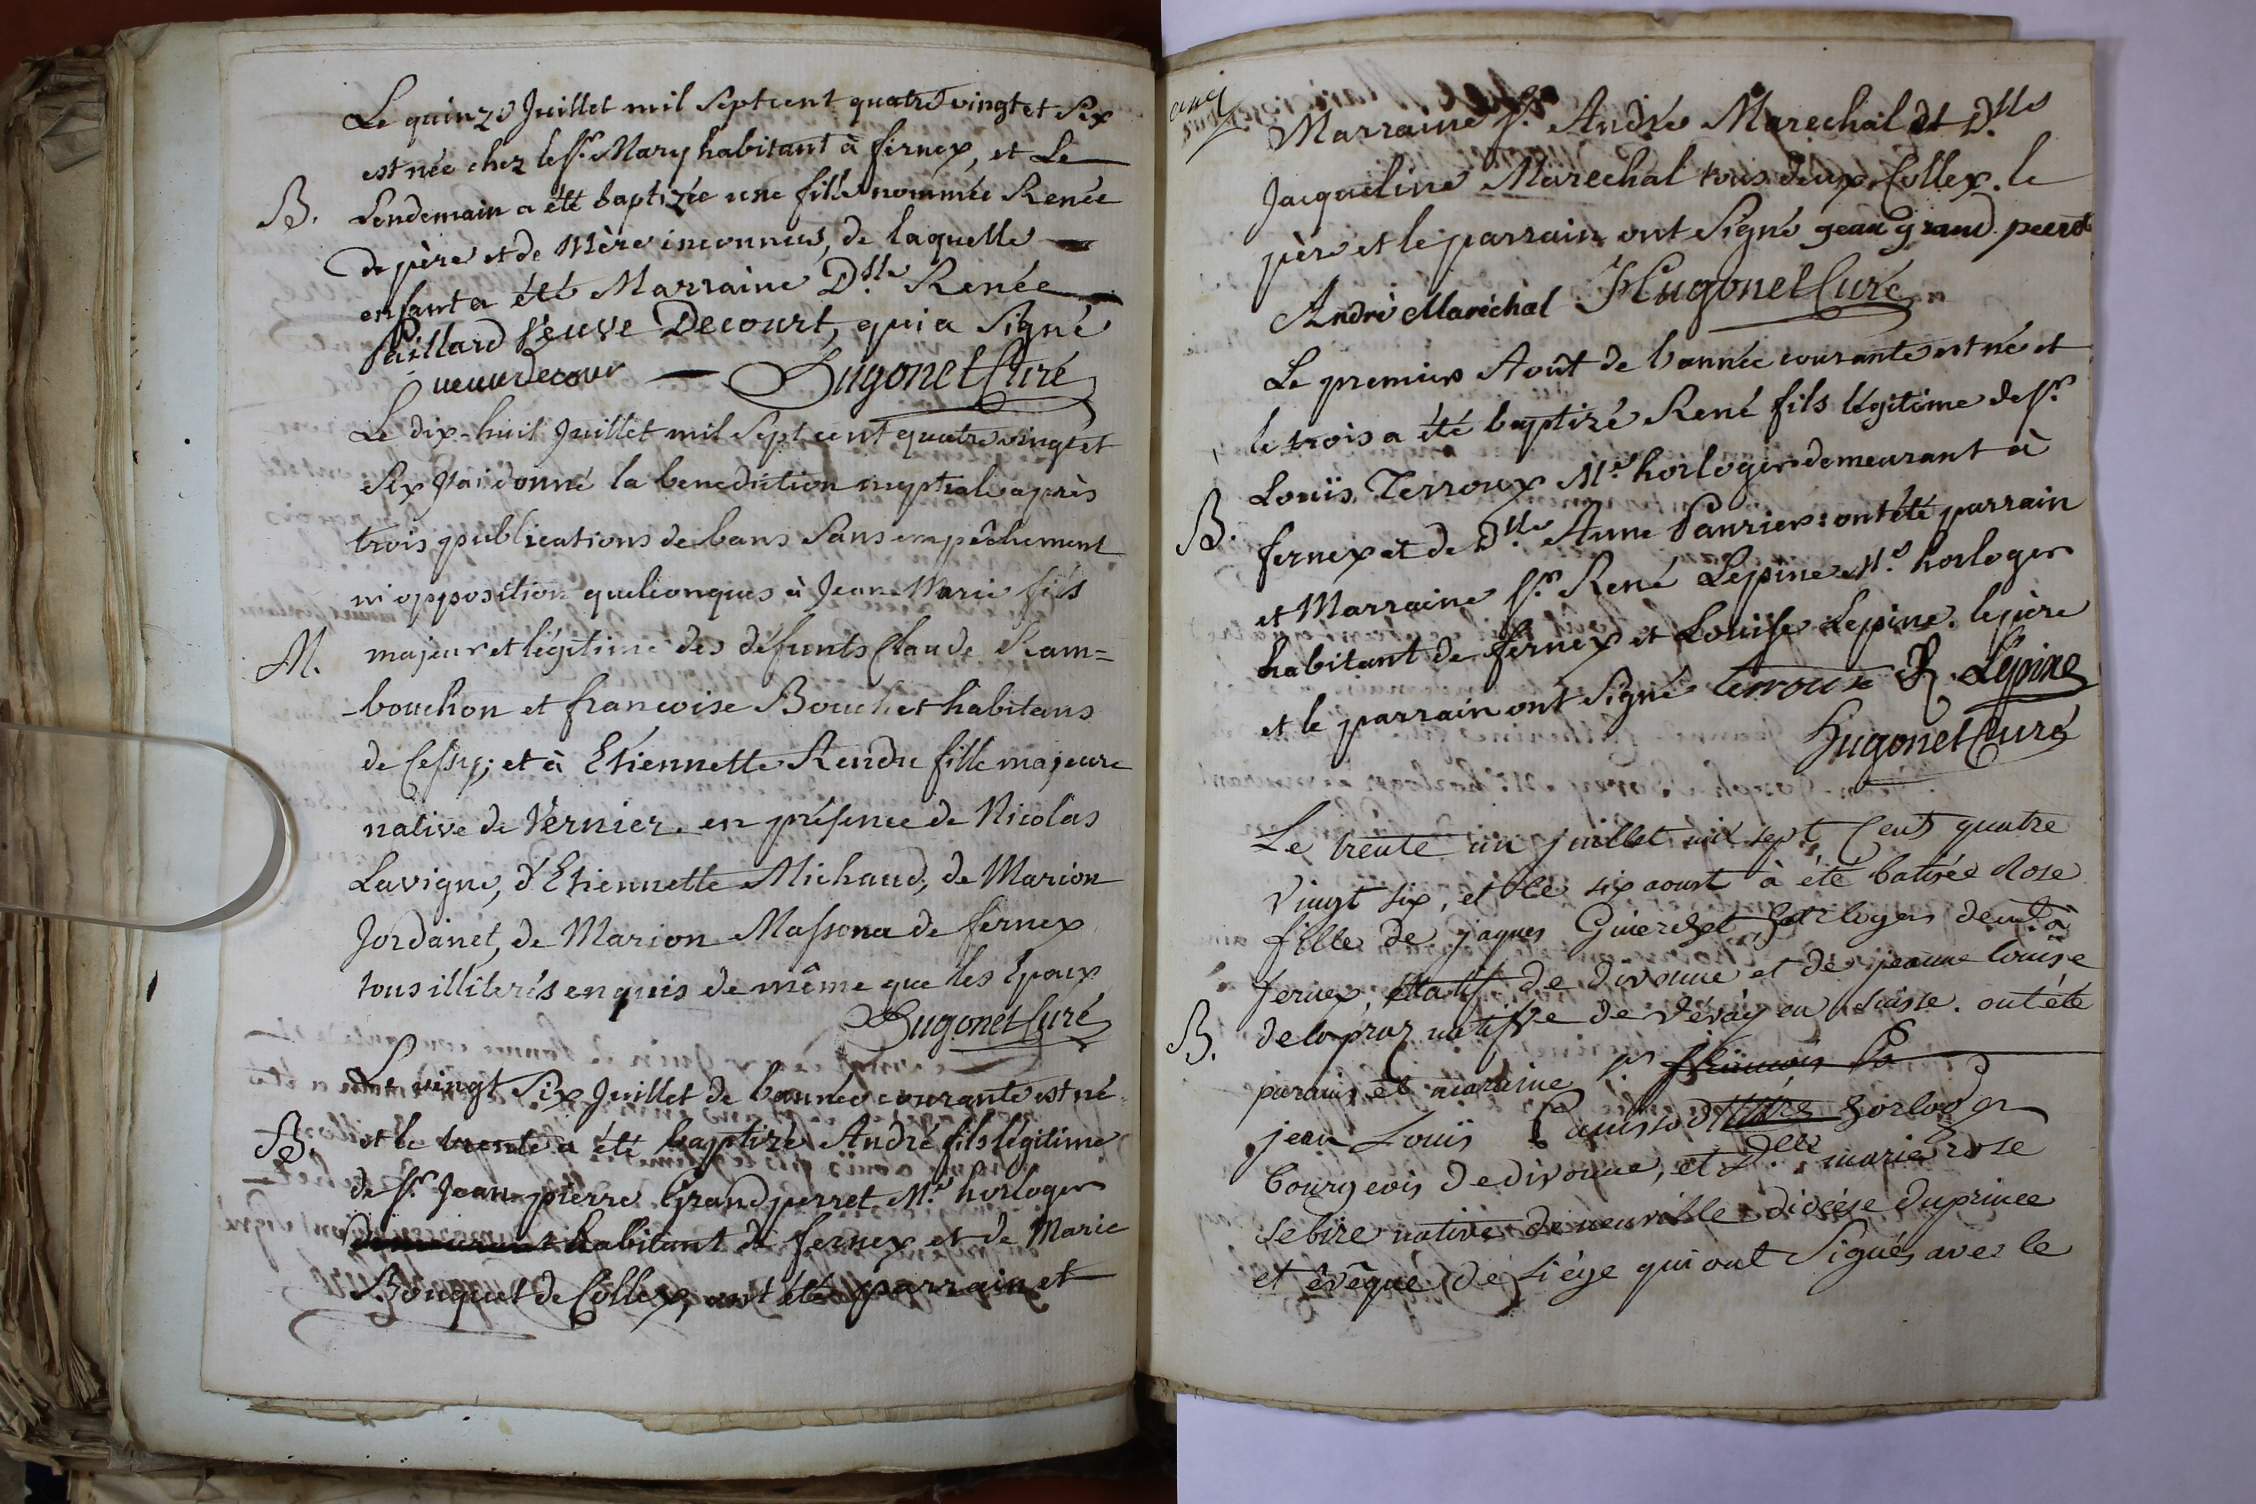 Le quinze Juillet mil Sept cent quatre vingt et Six
est née chez le Sr. Mary habitant à fernex, et Le
B. Lendemain a été baptizée une fille nommée Renée
de père et de Mère inconnus, de laquelle
enfant a été Marraine D.lle Renée
Paillard Veuve Decourt, qui a Signé
veuve decour Hugonet Curé
Le dix-huit Juillet mil Sept cent quatre vingt et
Six J'ai donné la benediction nuptiale après
trois publications de bans Sans empêchement
ni opposition quelconques à Jean Marie fils
M. majeur et légitime des défunts Claude Ram=
bouchon et francoise Bouchet habitans
de Cessy; et à Etiennette Rendu fille majeure
native de Vernier. en présence de Nicolas
Lavigne, d'Etiennette Michaud, de Marion
Jordanet, de Marion Massona de fernex
tous illiterés enquis de même que les Epoux
Hugonet Curé
Le vingt Six Juillet de l'année courante est né
B. et le trente a été baptizé André fils légitime
de Sr. Jean-pierre Grandperret Me. horloger
habitant de fernex et de Marie
Bouquet de Collex, ont été parrain et
cinq
Marraine Sr. André Marechal et D.lle
Jacqueline Marechal tous deux Collex. le
père et le parrain ont Signé jean grand peeret
André Maréchal Hugonet Curé
Le premier Août de l'année courante est né et
le trois a été baptizé René fils légitime de Sr.
Louïs Terroux Me. horloger demeurant à
B. fernex et de D.lle Anne Panrier: ont été parrain
et Marraine Sr. René Lépine Me. horloger
habitant de fernex et Louise Lepine. le père
et le parrain ont Signé terroux R. Lépine
Hugonet Curé
Le trente un juillet mil sept Cent quatre
vingt six, et le six aoust à été batisée Rose
fille de jaques Guerchet horloger demt. à
fernex, natif de divonne et de jeanne louise
B. delapraz native de Vévay en Suisse. ont été
parain et maraine Sr francois
jean Louïs horloger
bourgeois de divonne, et Delle marie rose
Sebire native de neuville diocèse du prince
et évêque de Liége qui ont Signés avec le